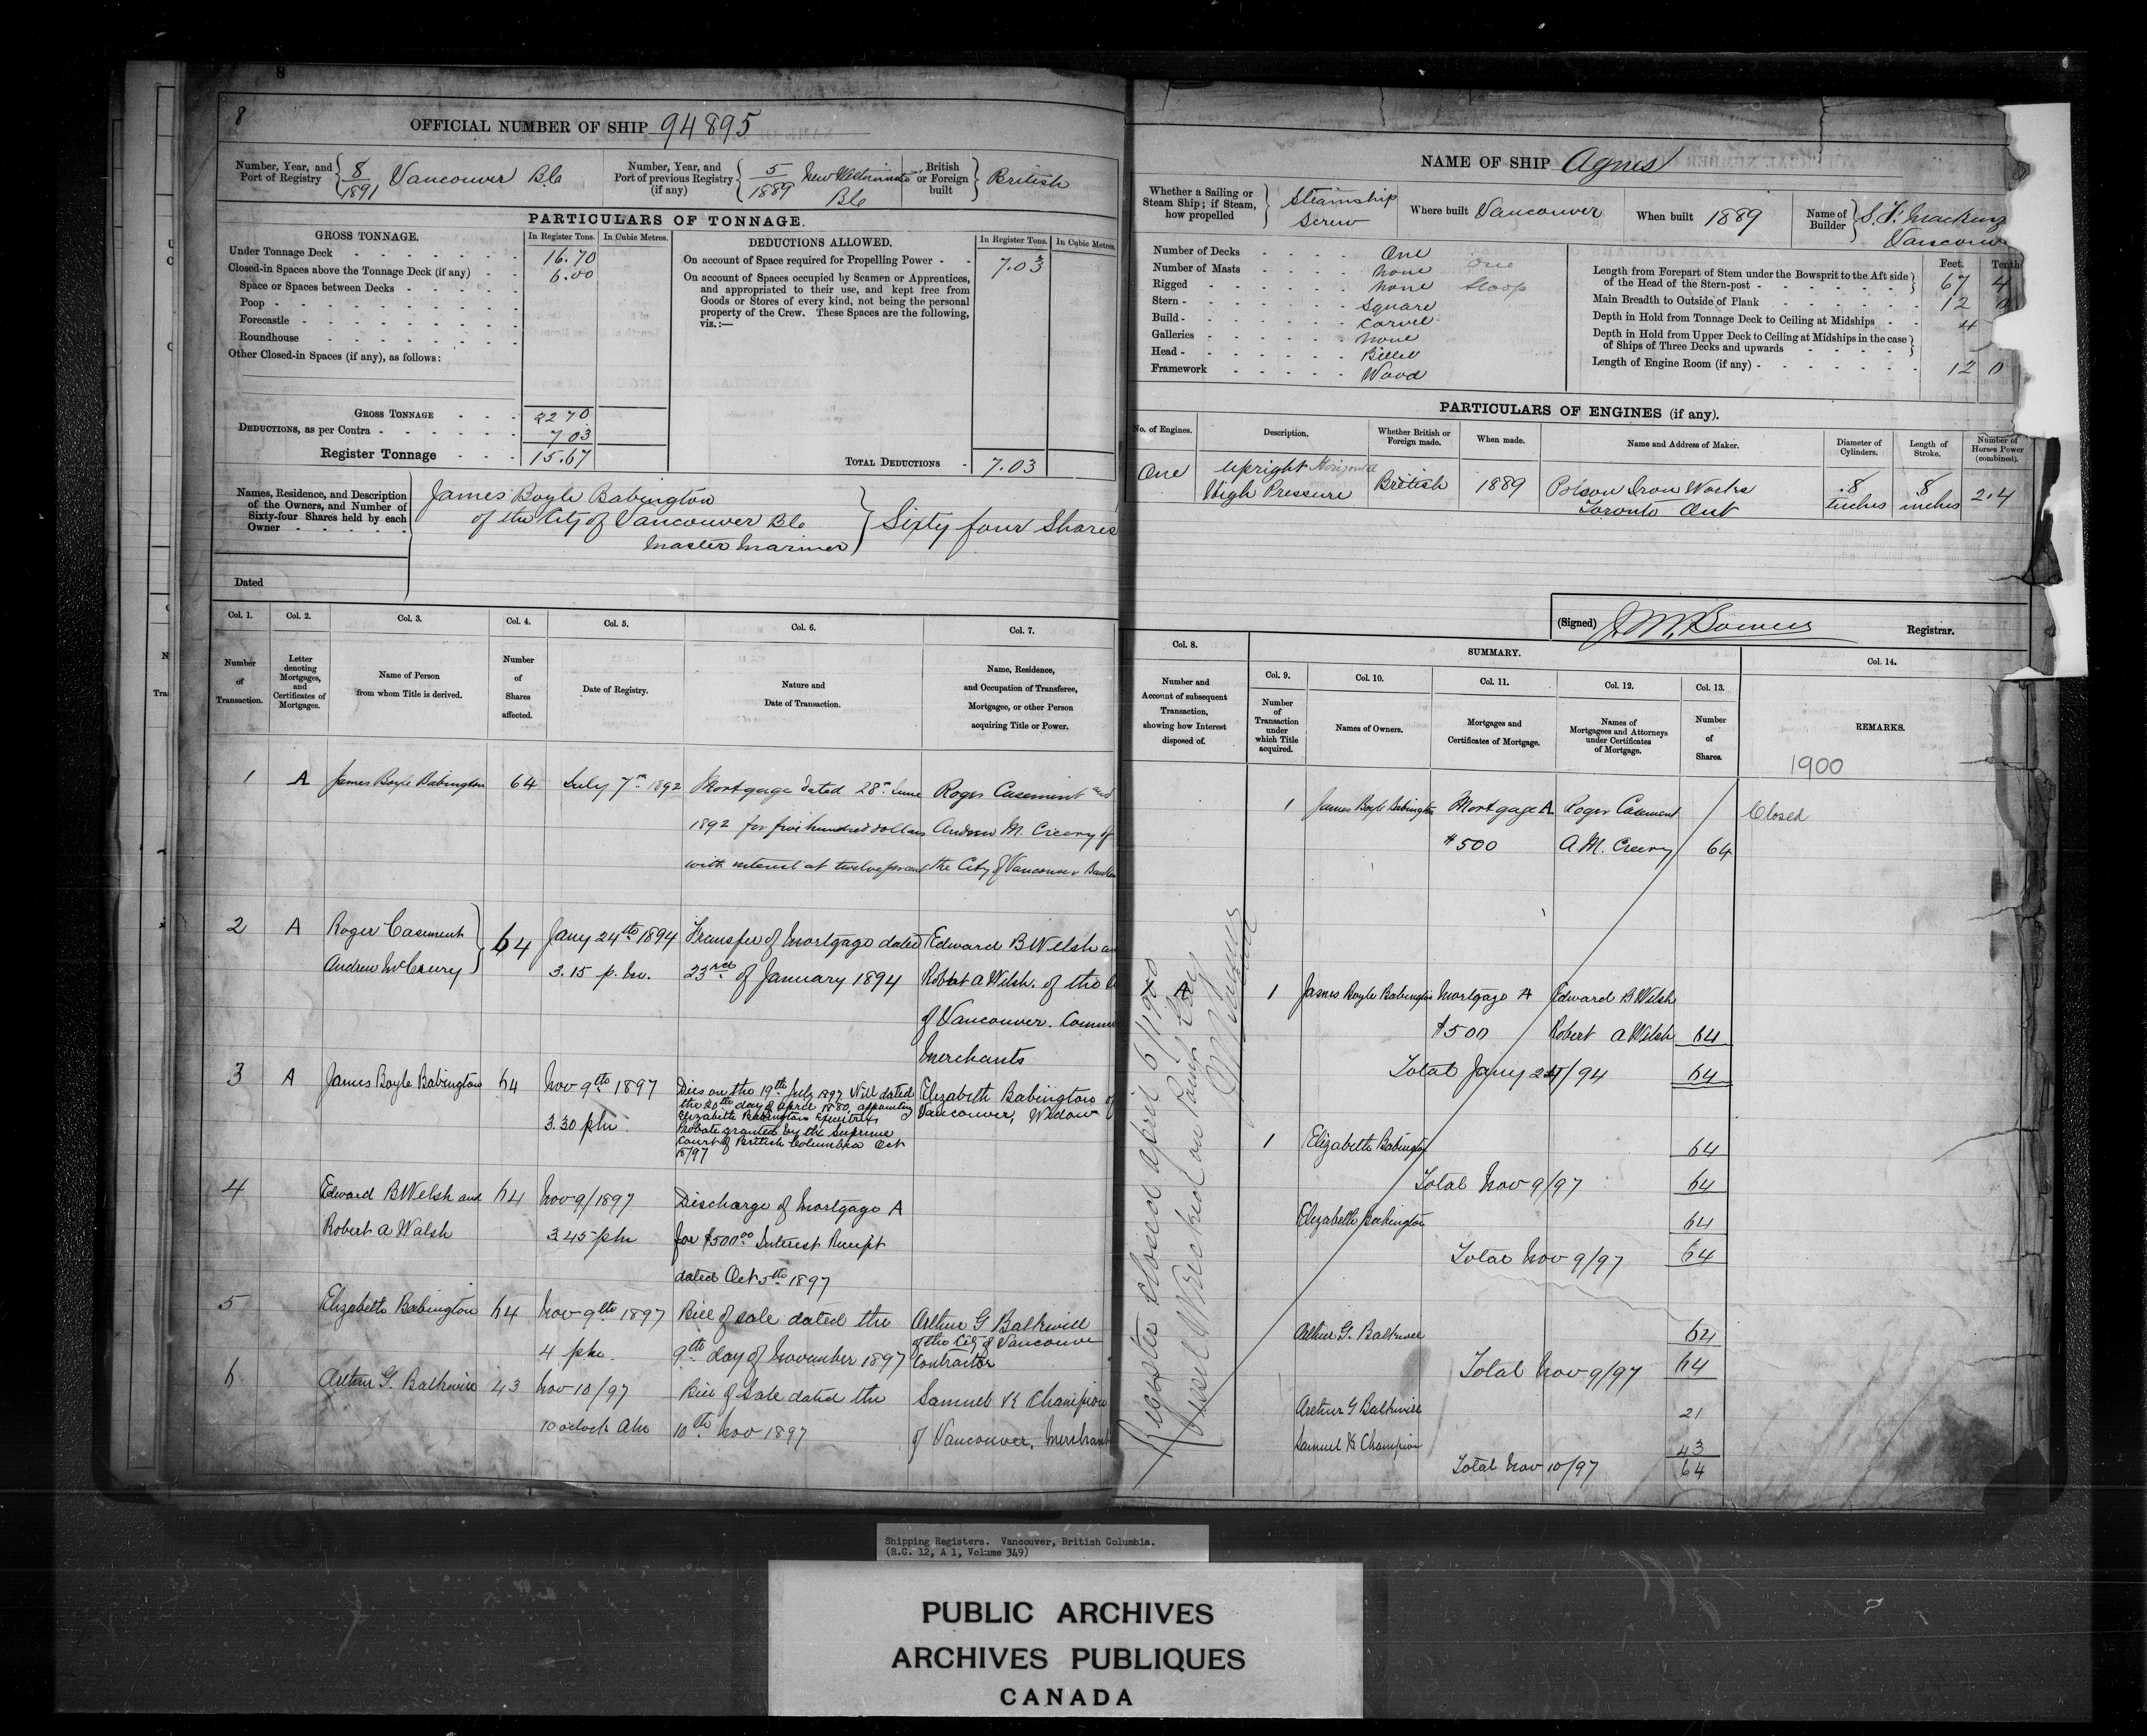 8
OFFICIAL NUMBER OF SHIP 94895
Number, Year, and Port of Registry 8/1891 Vancouver Bc
Number, Year, and Port of previous Registry (if any) 5/1889 New Westminster Bc
British or Foreign built British
PARTICULARS OF TONNAGE.
GROSS TONNAGE. In Register Tons. In Cubic Metres.
Under Tonnage Deck 16.70
Closed-in Spaces above the Tonnage Deck (if any) 6.00
Space or Spaces between Decks
Poop
Forecastle
Roundhouse
Other Closed-in Spaces (if any), as follows:
GROSS TONNAGE 22 70
DEDUCTIONS, as per Contra 7 03
Register Tonnage 15.67
DEDUCTIONS ALLOWED. In Register Tons. In Cubic Metres.
On account of Space required for Propelling Power 7.03
On account of Spaces occupied by Seamen or Apprentices,
and appropriated to their use, and kept free from
Goods or Stores of every kind, not being the personal
property of the Crew. These Spaces are the following,
viz.:—
TOTAL DEDUCTIONS 7.03
Names, Residence, and Description
of the Owners, and Number of
Sixty-four Shares held by each
Owner
James Boyle Babington
of the City of Vancouver Bc
Master Mariner
Sixty four Shares
Dated
NAME OF SHIP Agnes
Whether a Sailing or Steam Ship; if Steam, how propelled Steamship Screw
Where built Vancouver
When built 1889
Name of Builder
Vancouv
Number of Decks One
Number of Masts None One
Rigged None Sloop
Stern Square
Build Carvel
Galleries None
Head Billet
Framework Wood
Feet. Tenth
Length from Forepart of Stem under the Bowsprit to the Aft side
of the Head of the Stern-post 67 4
Main Breadth to Outside of Plank 12 0
Depth in Hold from Tonnage Deck to Ceiling at Midships 4
Depth in Hold from Upper Deck to Ceiling at Midships in the case
of Ships of Three Decks and upwards
Length of Engine Room (if any) 12 0
PARTICULARS OF ENGINES (if any).
No. of Engines. Description. Whether British or Foreign made. When made. Name and Address of Maker. Diameter of Cylinders. Length of Stroke. Number of Horses Power (combined).
One Upright Horizontal High Pressure British 1889 Polson Iron Works Toronto Ont 8 inches 8 inches 2.4
(Signed) Registrar.
Col. 1. Col. 2. Col. 3. Col. 4. Col. 5. Col. 6. Col. 7.
Number of Transaction.
Letter denoting Mortgages, and Certificates of Mortgages.
Name of Person from whom Title is derived.
Number of Shares affected.
Date of Registry.
Nature and Date of Transaction.
Name, Residence, and Occupation of Transferee, Mortgagee, or other Person acquiring Title or Power.
1 A James Boyle Babington 64 July 7th 1892 Mortgage dated 28th June Roger Casement and
1892 for five hundred dollars Andrew M. Creery of
with interest at twelve per cent the City of Vancouver
2 A Roger Casement 64 Jany 24th 1894 Transfer of Mortgage dated Edward B Welsh an
Andrew McCreery 3.15 p.m. 23rd of January 1894 Robert A Welsh. of the
of Vancouver. Comm
Merchants
3 A James Boyle Babington 64 Nov 9th 1897 Dies on the 19th July 1897 Will dated Elizabeth Babington of
the 20th day of April 1880, appointing Vancouver, Widow
Elizabeth Babington Executrix
3.30 pm Probate granted by the Supreme
Court of British Columbia Oct
15/97
4 Edward B Welsh and 64 Nov 9/1897 Discharge of Mortgage A
Robert A Walsh 3.45 pm for $500.00 Interest Receipt
dated Oct 5th 1897
5 Elizabeth Babington 64 Nov 9th 1897 Bill of sale dated the Arthur G Balkwill
of the City of Vancouver
4 pm 9th day of November 1897 Contractor
6 Arthur G. Balkwill 43 Nov 10/97 Bill of Sale dated the Samuel K Champion
10 oclock Am 10th Nov 1897 of Vancouver, Merchant
Col. 8.
Number and Account of subsequent Transaction, showing how Interest disposed of.
SUMMARY.
Col. 9. Col. 10. Col. 11. Col. 12. Col. 13.
Number of Transaction under which Title acquired.
Names of Owners.
Mortgages and Certificates of Mortgage.
Names of Mortgagees and Attorneys under Certificates of Mortgage.
Number of Shares.
Col. 14.
REMARKS.
1900
Closed
1 James Boyle Babington Mortgage A Roger Casement
$500 A M. Creery 64
1 A 1 James Boyle Babington Mortgage A Edward B Welsh
$500 Robert A Welsh 64
Total Jany 24/94 64
1 Elizabeth Babington 64
Total Nov 9/97 64
Elizabeth Babington 64
Total Nov 9/97 64
Arthur G. Balkwill 64
Total Nov 9/97 64
Arthur G Balkwill 21
Samuel K Champion 43
Total Nov 10/97 64
Register closed April 6/1900
Vessel Wrecked on
Shipping Registers. Vancouver, British Columbia.
(R.G. 12, A 1, Volume 349)
PUBLIC ARCHIVES
ARCHIVES PUBLIQUES
CANADA